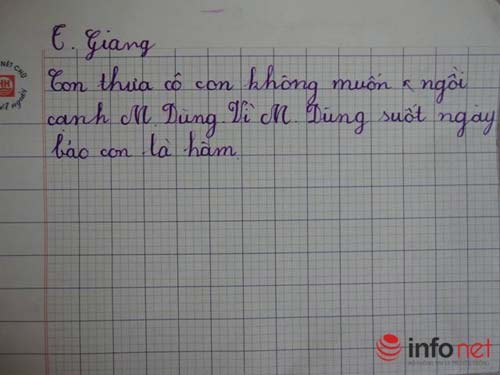 T. Giang
Con thưa cô con không muốn ngồi
cạnh M. Dũng. Vì M. Dũng suốt ngày
bảo con là hâm.
NÉT CHỮ
infonet